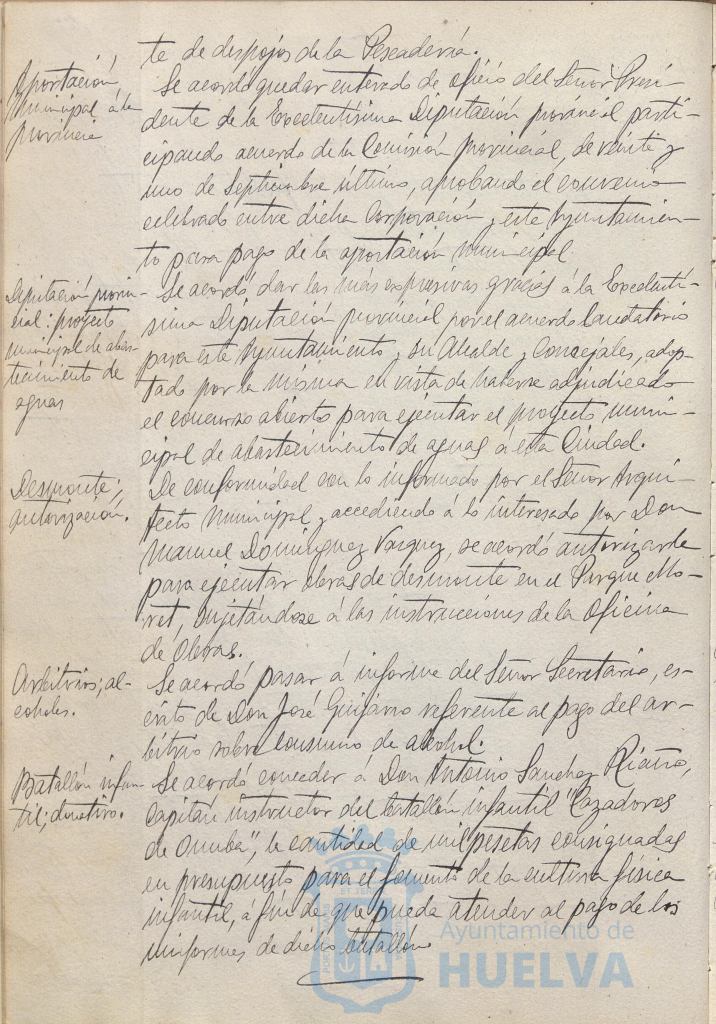 te de despojos de la Pescadería.
Aportación
municipal á la
provincia
Se acordó quedar enterado de oficio del Señor Presi-
dente de la Excelentísima Diputación provincial parti-
cipando acuerdo de la Comisión provincial, de veinte y
uno de Septiembre último, aprobando el convenio
celebrado entre dicha Corporación y este Ayuntamien-
to para pago de la aportación municipal.
Diputación provin-
cial: proyecto
municipal de abas-
tecimiento de
aguas
Se acordó dar las más expresivas gracias á la Excelentí-
sima Diputación provincial por el acuerdo laudatorio
para este Ayuntamiento y su Alcalde y Concejales, adop-
tado por la misma en vista de haberse adjudicado
el concurso abierto para ejecutar el proyecto muni-
cipal de abastecimiento de aguas á esta Ciudad.
Desmonte;
autorización.
De conformidad con lo informado por el Señor Arqui-
tecto Municipal y accediendo á lo interesado por Don
Manuel Domínguez Vazquez, se acordó autorizarle
para ejecutar obras de desmonte en el Parque Mo-
ret, sujetándose á las instrucciones de la Oficina
de Obras.
Arbitrios; al-
coholes.
Se acordó pasar á informe del Señor Secretario, es-
crito de Don José Guijarro referente al pago del ar-
bitrio sobre consumo de alcohol.
Batallón infan-
til; donativo.
Se acordó conceder á Don Antonio Sanchez Riaño,
Capitán instructor del batallón infantil "Cazadores
de Onuba", la cantidad de mil pesetas consignadas
en presupuesto para el fomento de la cultura física
infantil, á fin de que pueda atender al pago de los
uniformes de dicho batallón.
Ayuntamiento de
HUELVA